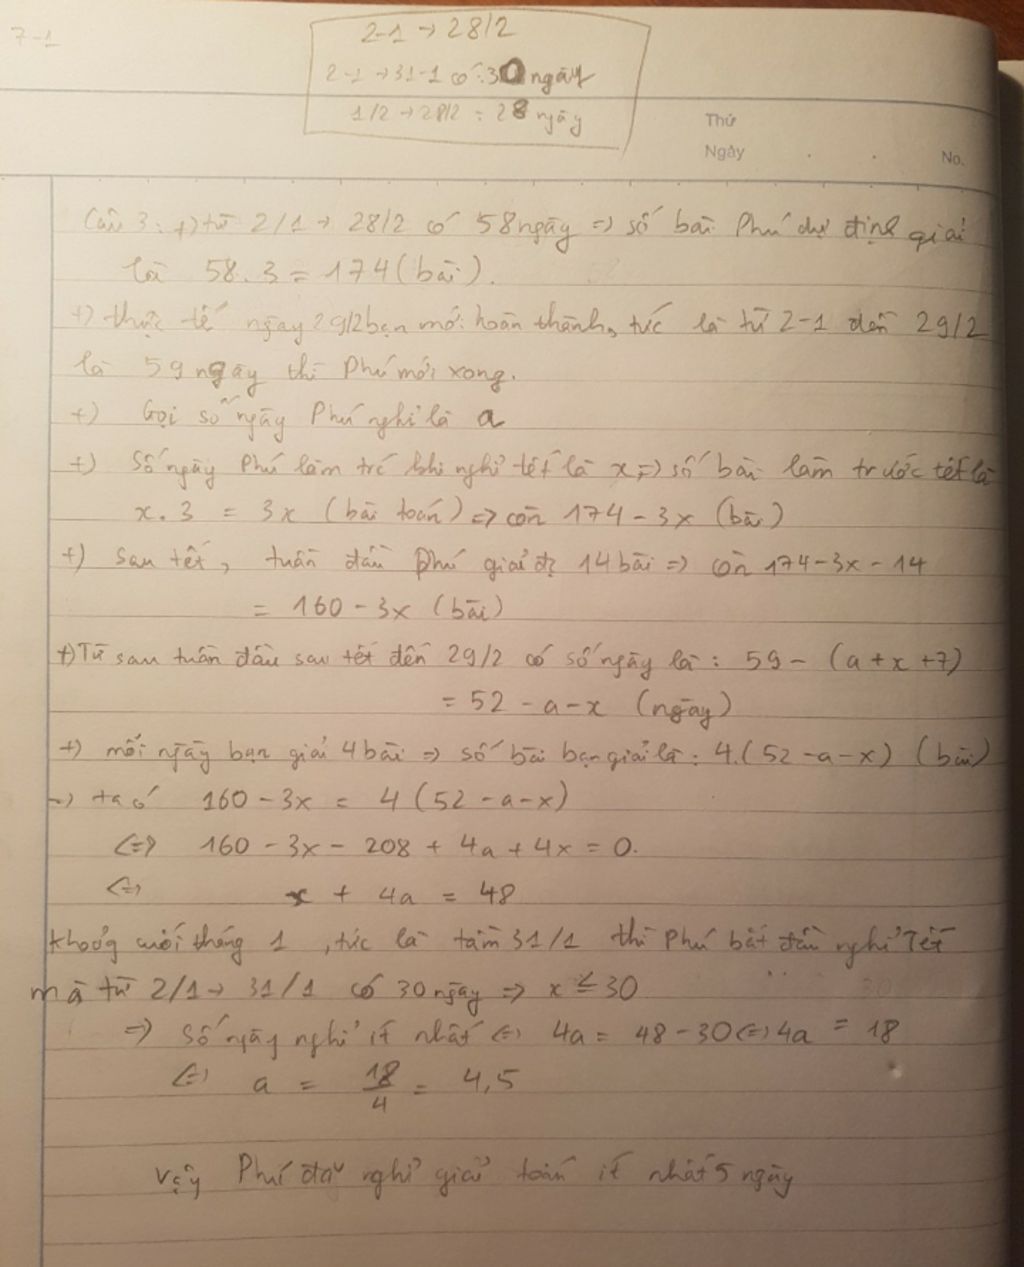 7-1
2-1 → 28/2
2-1 → 31-1 có: 30 ngày
1/2 → 28/2 : 28 ngày
Thứ
Ngày . .
No.
Câu 3: +) từ 2/1 → 28/2 có 58 ngày => số bài Phú dự định giải
là 58.3 = 174 (bài).
+) thực tế ngày 29/2 bạn mới hoàn thành, tức là từ 2-1 đến 29/2
là 59 ngày thì Phú mới xong.
+) Gọi số ngày Phú nghỉ là a
+) Số ngày Phú làm trc khi nghỉ tết là x => số bài làm trước tết là
x.3 = 3x (bài toán) => còn 174 - 3x (bài)
+) sau tết, tuần đầu Phú giải đc 14 bài => còn 174 - 3x - 14
= 160 - 3x (bài)
+) Từ sau tuần đầu sau tết đến 29/2 có số ngày là: 59 - (a + x + 7)
= 52 - a - x (ngày)
+) mỗi ngày bạn giải 4 bài => số bài bạn giải là: 4.(52 - a - x) (bài)
=> ta có 160 - 3x = 4 (52 - a - x)
<=> 160 - 3x - 208 + 4a + 4x = 0.
<=> x + 4a = 48
khoảng cuối tháng 1, tức là tầm 31/1 thì Phú bắt đầu nghỉ Tết
mà từ 2/1 → 31/1 có 30 ngày => x ≤ 30
=> Số ngày nghỉ ít nhất <=> 4a = 48 - 30 <=> 4a = 18
<=> a = 18/4 = 4,5
Vậy Phú đã nghỉ giải toán ít nhất 5 ngày